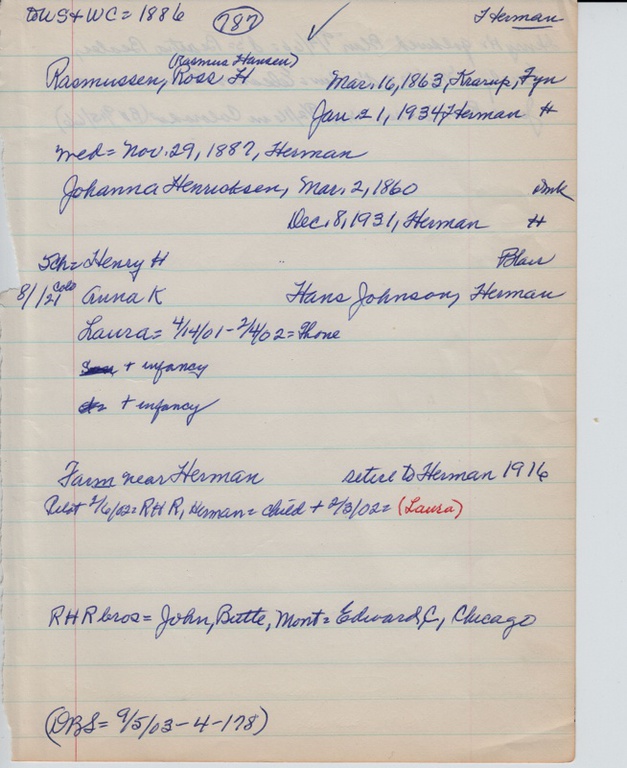 to US + WC = 1886 787 ✓ Herman
(Rasmus Hansen)
Rasmussen, Ross H Mar. 16, 1863, Krarup, Fyn
Jan 21, 1934, Herman H
med = Nov. 29, 1887, Herman
Johanna Henricksen, Mar. 2, 1860 Dmk
Dec. 8, 1931, Herman H
Sch = Henry H Blair
8/1/21 Colo Anna K Hans Johnson, Herman
Laura = 4/14/01 - 2/4/02 = Thone
+ infancy
+ infancy
Farm near Herman retire to Herman 1916
Pilot 2/6/02 = RHR, Herman = child + 2/3/02 = (Laura)
RHR bros = John, Butte, Mont = Edward C, Chicago
(DBS = 9/5/03-4-178)